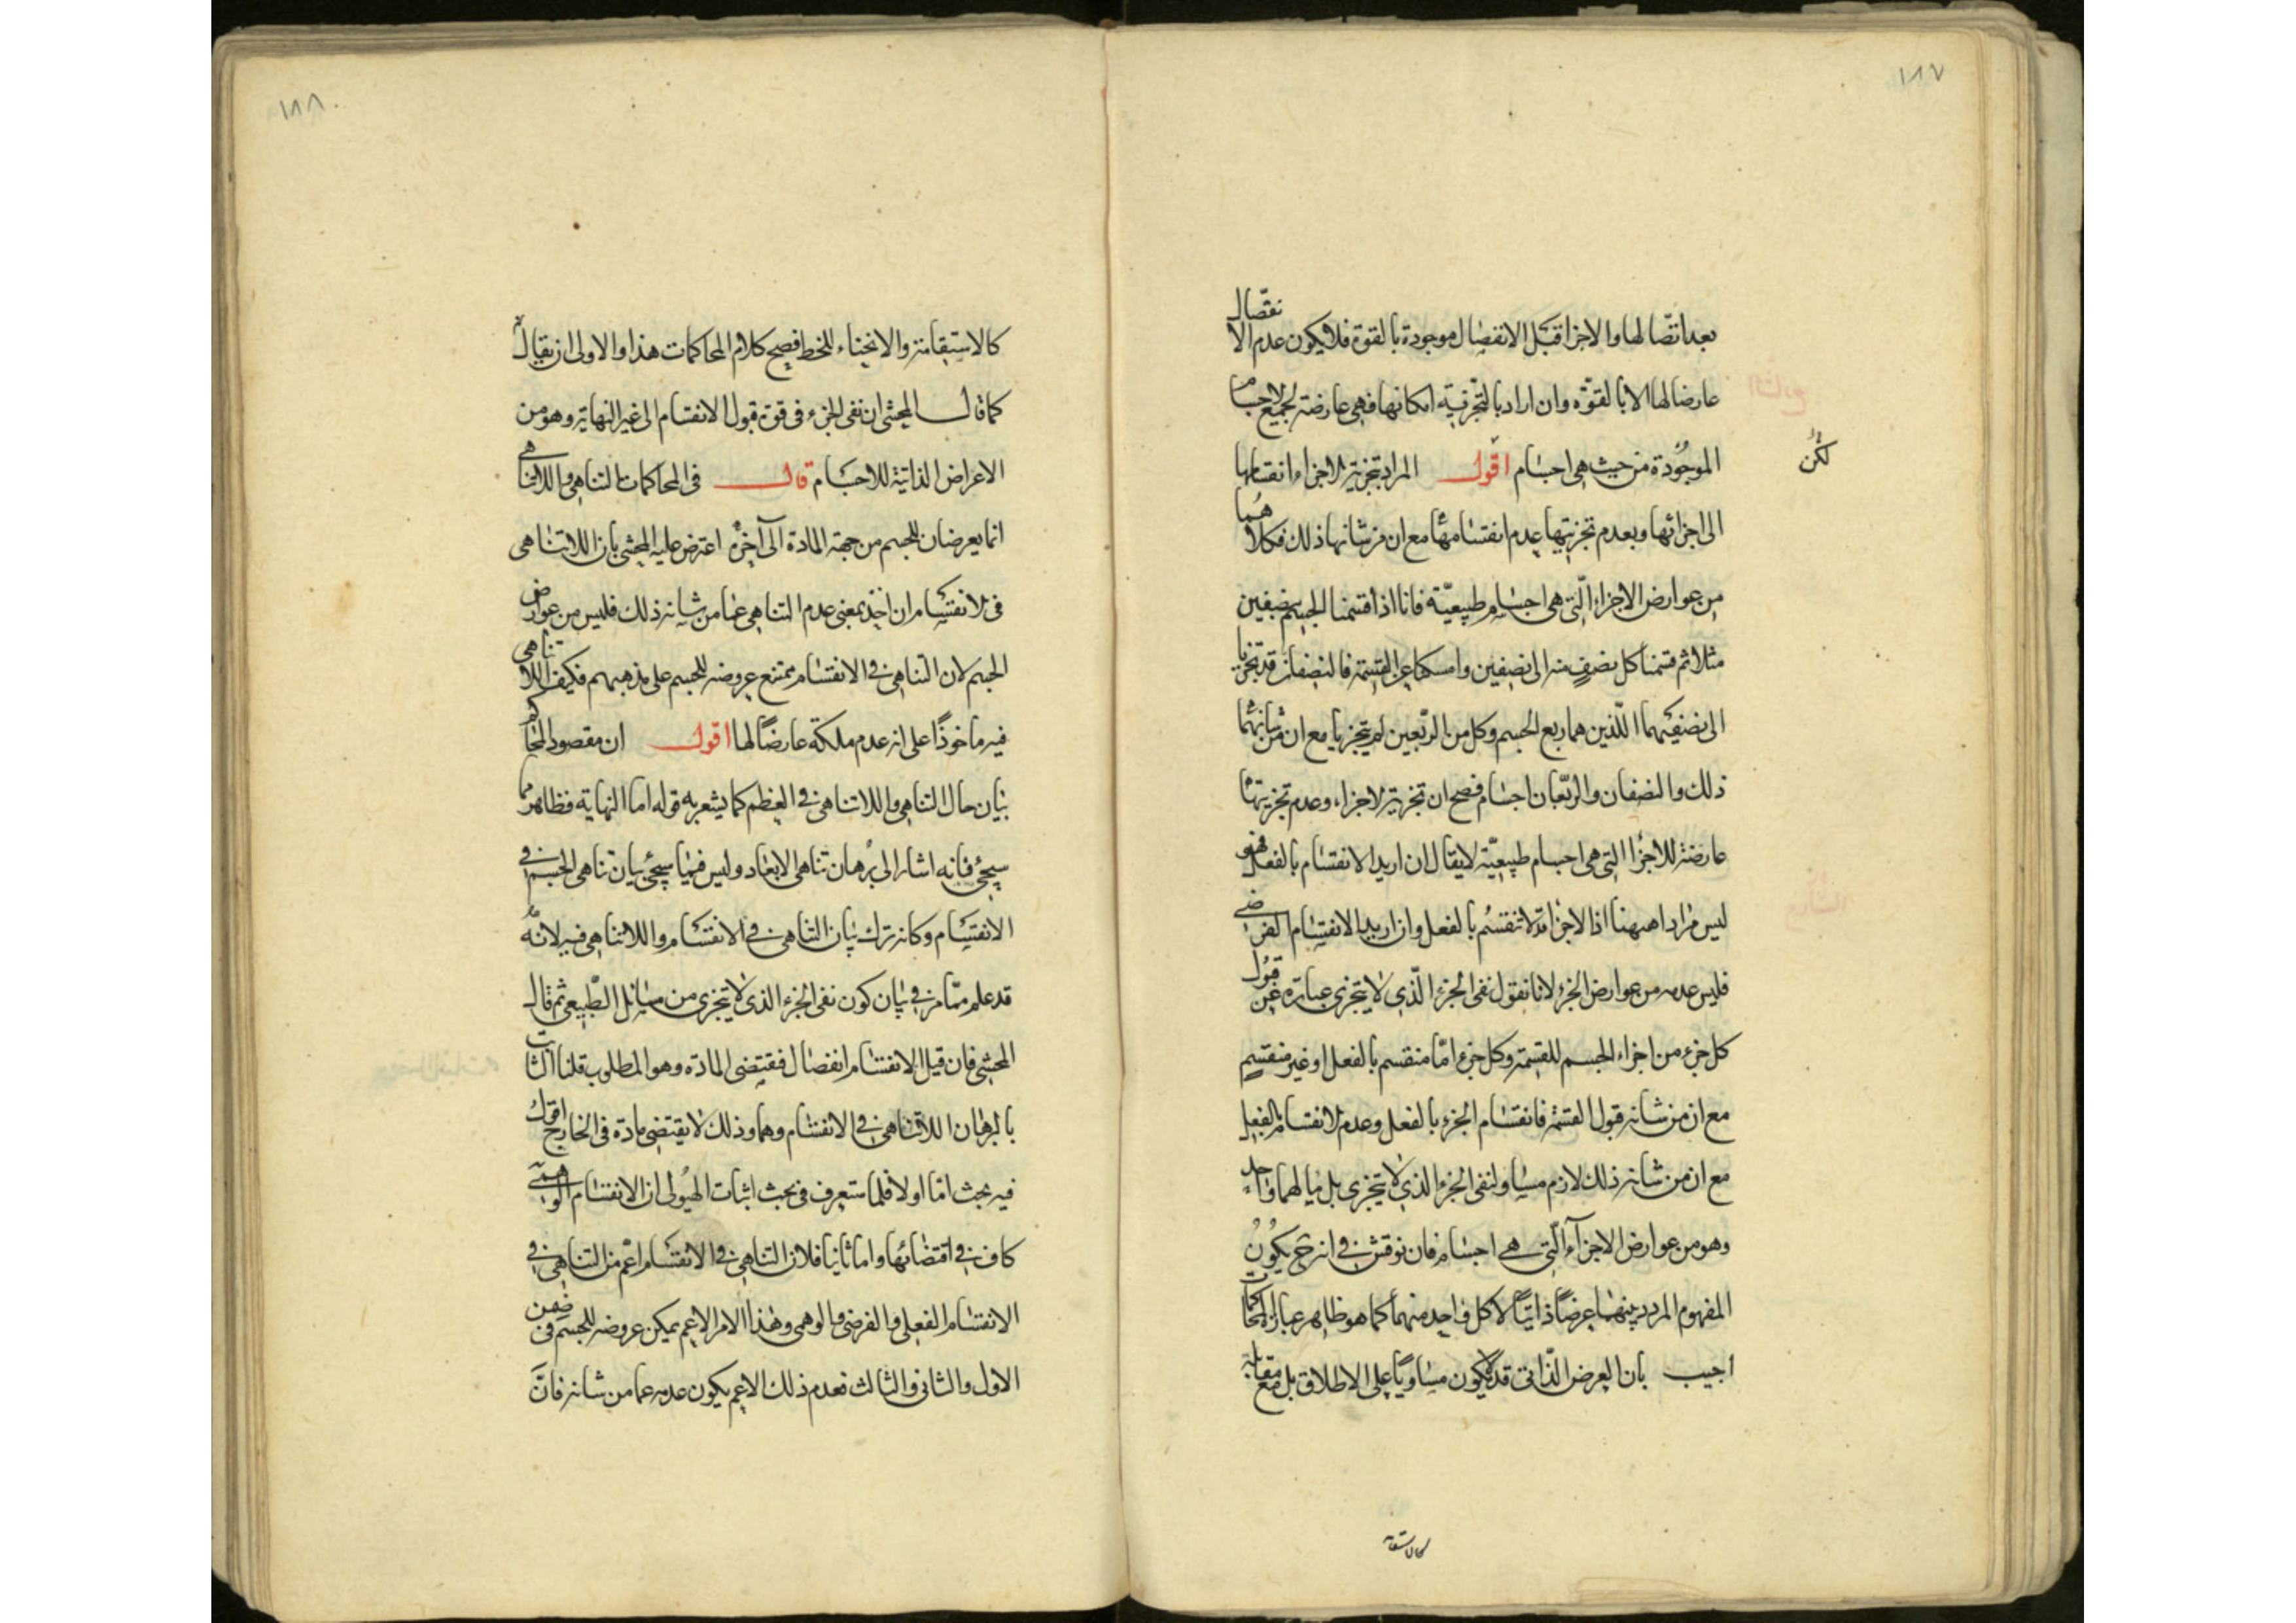 ١٨٧
بعد اتّصالها والاجزا قبل الانفصال موجودة بالقوة فلا يكون عدم الانفصال
عارضا لها الا بالقوّة وان اراد بالتجزئية امكانها فهى عارضة لجميع الاجسام
الموجودة من حيث هى اجسام اقول المراد بتجزية الاجزاء انقسامها
لكن
الى اجزائها وبعدم تجزيتها عدم انقسامها مع ان من شانها ذلك فكلاهما
من عوارض الاجزاء الّتى هى اجسام طبيعيّة فانا اذا قسمنا الجسم بنصفين
مثلا ثم قسمنا كل نصف منه الى نصفين وامسكنا عن القسمة فالنصفان قد تجزيا
الى نصفيهما اللّذين هما ربع الجسم وكل من الرّبعين لم يتجزيا مع ان من شانهما
ذلك والنصفان والربّعان اجسام فصح ان تجزية الاجزاء وعدم تجزيتها
عارضة للاجزا التى هى اجسام طبيعيّة لا يقال ان اريد الانقسام بالفعل فهو
ليس مرادا ههنا اذ الاجزا قد لا تنقسم بالفعل وان اريد الانقسام الفرضى
فليس عدمه من عوارض الجزء لانا نقول نفى الجزء الّذى لا يتجزى عبارة عن قبول
كل جزء من اجزاء الجسم للقسمة وكل جزء امّا منقسم بالفعل او غير منقسم
مع ان من شانه قبول القسمة فانقسام الجزء بالفعل وعدم الانقسام بالفعل
مع ان من شانه ذلك لازم مساو لنفى الجزء الذى لا يتجزى بل مالهما واحد
وهو من عوارض الاجزآء الّتى هى اجسام فان نوقش فى انه ح يكون
المفهوم المردد بينهما عرضًا ذاتيًا لا كل واحد منهما كما هو ظاهر عبارة المحاكمات
اجيب بان العرض الذّاتى قد لا يكون مساويًا على الاطلاق بل مع مقابله
كالاستقا
١٨٨
كالاستقامة والانحناء للخط فصح كلام المحاكمات هذا والاولى ان يقال
كما قال المحشى ان نفى الجزء فى قوة قبول الانقسام الى غير النهاية وهو من
الاعراض الذاتية للاجسام قال فى المحاكمات التناهى واللاتناهى
انما يعرضان للجسم من جهة المادة الى آخره اعترض عليه المحشى بان اللاتناهى
فى الانقسام ان اخذ بمعنى عدم التناهى عما من شانه ذلك فليس من عوارض
الجسم لان التناهى فى الانقسام ممتنع عروضه للجسم على مذهبهم فكيف اللاتناهى
فيه ماخوذًا على انه عدم ملكة عارضًا لها اقول ان مقصود المحاكم
بيان حال التناهى واللاتناهى فى العظم كما يشعر به قوله اما النهاية فظاهر مما
سيجئ فانه اشار الى برهان تناهى الابعاد وليس فيما سيجئ بيان تناهى الجسم فى
الانقسام وكانه ترك بيان التناهى فى الانقسام واللاتناهى فيه لانّه
قد علم ممّا مر فى بيان كون نفى الجزء الذى لا يتجزى من مسائل الطّبيعى ثم قال
المحشى فان قيل الانقسام انفصال فيقتضى المادة وهو المطلوب قلنا الثابت
بالبرهان اللاتناهى فى الانقسام وهما وذلك لا يقتضى مادة فى الخارج اقول
فيه بحث امّا اولا فلما ستعرف فى بحث اثبات الهيولى ان الانقسام الوهمى
كاف فى اقتضائها واما ثانيا فلان التناهى فى الانقسام اعم من التناهى فى
الانقسام الفعلى والفرضى والوهمى وهذا الامر الاعم يمكن عروضه للجسم فى ضمن
الاول والثانى والثالث فعدم ذلك الاعم يكون عدمه عما من شانه فانّ